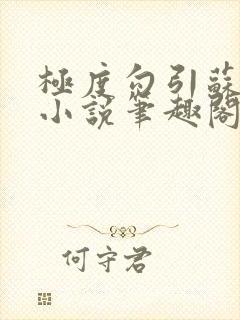 極度勾引蘇
小說筆趣閣
何守君